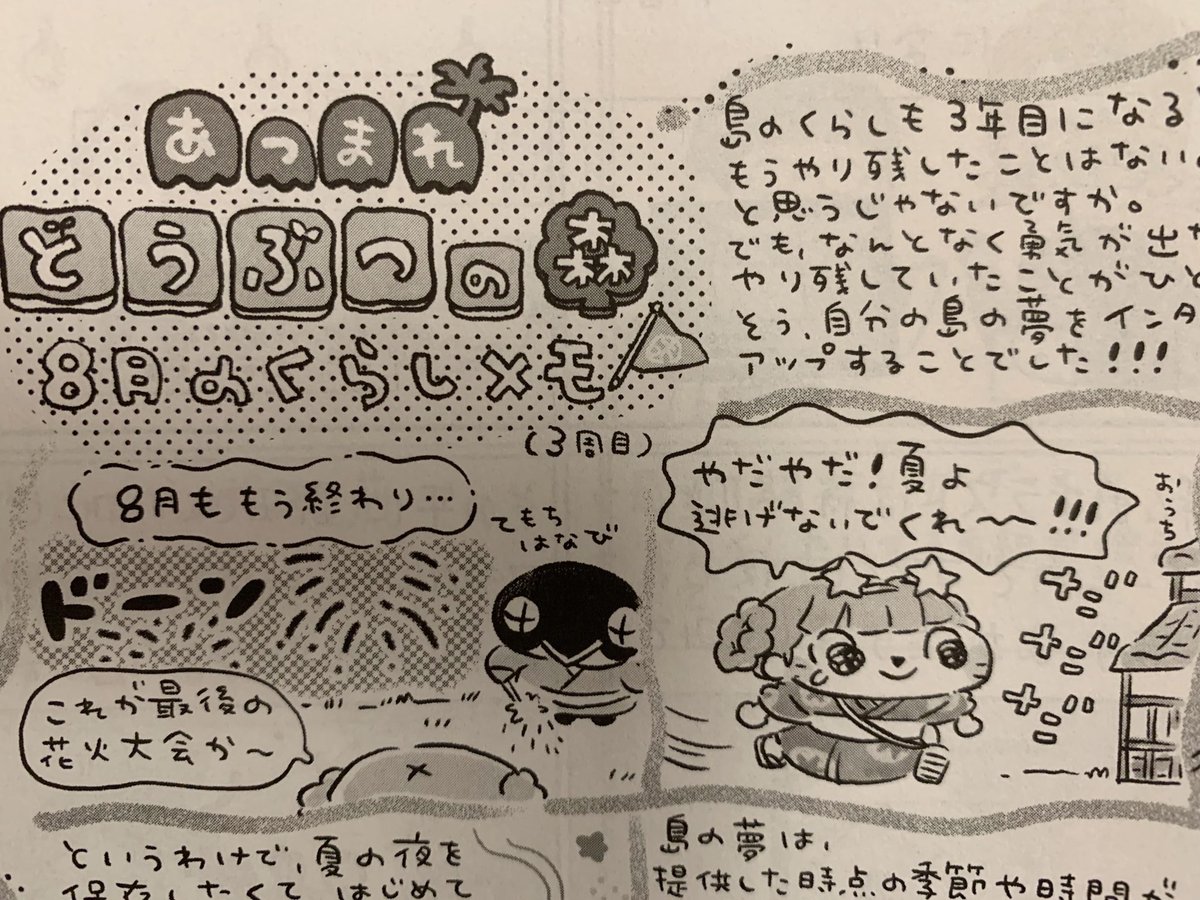 あつまれ
どうぶつの森
8月のくらしメモ
(3周目)
島のくらしも3年目になる
もうやり残したことはない
と思うじゃないですか。
でも、なんとなく勇気が出
やり残していたことがひと
そう、自分の島の夢をインタ
アップすることでした!!!
8月ももう終わり…
てもち
はなび
ドーン
これが最後の
花火大会か〜
やだやだ!夏よ
逃げないでくれ〜〜!!!
おうち
というわけで、夏の夜を
保存したくて はじめて
島の夢は、
提供した時点の季節や時間が